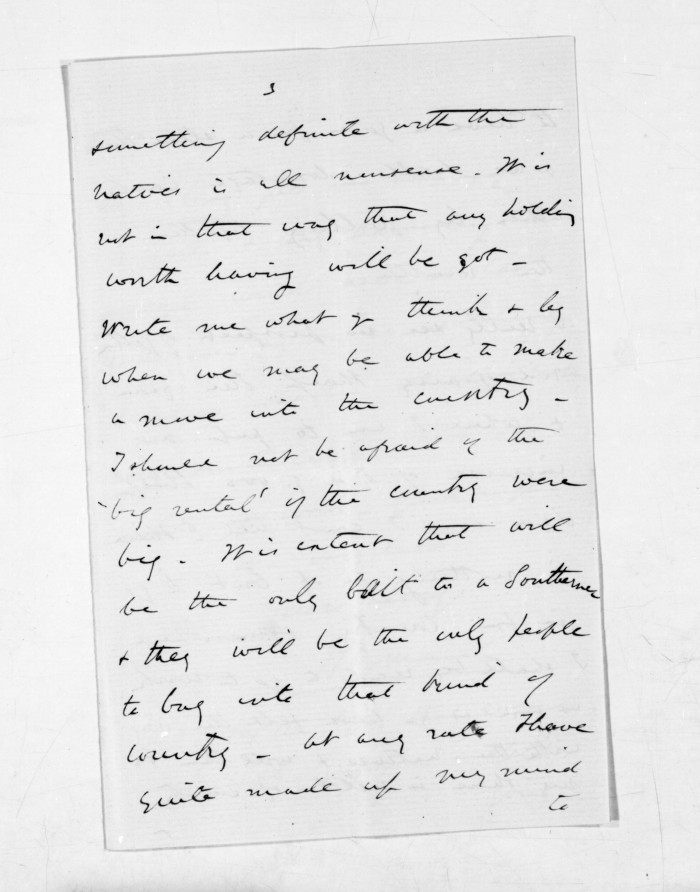 3
something definite with the
natives is all nonsense. It is
not in that way that any holding
worth having will be got -
Write me what yr think &
when we may be able to make
a move into the country -
I should not be afraid of the
'big rental' if the country were
big. It is extent that will
be the only bait to a Southerner
& they will be the only people
to buy into that kind of
country - at any rate I have
quite made up my mind
to